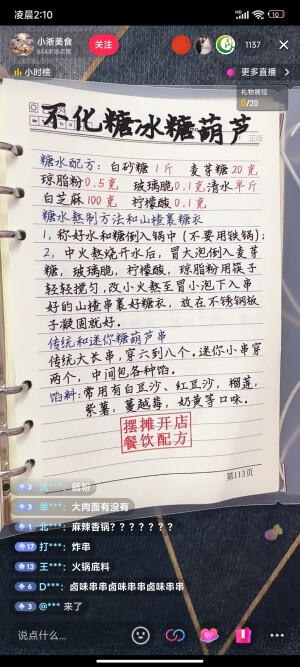 凌晨2:10
10
小淅美食
654本场点赞
关注
1137
小时榜
更多直播 >
礼物展馆
0/20
不化糖冰糖葫芦
糖水配方：白砂糖1斤 麦芽糖20克
琼脂粉0.5克 玻璃脆0.1克清水半斤
白芝麻100克 柠檬酸0.1克
糖水熬制方法和山楂裹糖衣
1，称好水和糖倒入锅中（不要用铁锅）；
2，中火熬烧开水后，冒大泡倒入麦芽
糖，玻璃脆，柠檬酸，琼脂粉用筷子
轻轻搅匀，改小火熬至冒小泡下入串
好的山楂串裹好糖衣，放在不锈钢板
子凝固就好。
传统和迷你糖葫芦串
传统大长串，穿六到八个。迷你小串穿
两个，中间包各种馅。
馅料：常用有白豆沙、红豆沙，榴莲，
紫薯，蔓越莓，奶黄等口味。
摆摊开店
餐饮配方
第113页
3 沈***：肠粉
3 单***：大肉面有没有
1 北***：麻辣香锅？？？？？？？
17 打***：炸串
13 王***：火锅底料
6 D***：卤味串串卤味串串卤味串串
3 @*** 来了
说点什么...